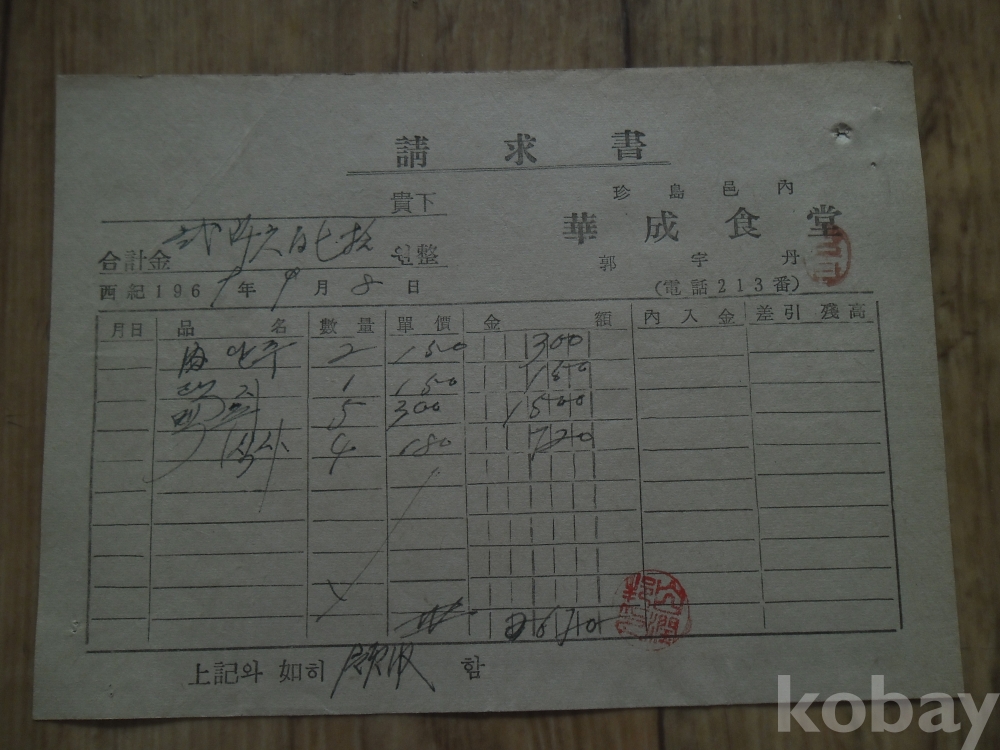 請求書
貴下
珍島邑內
華成食堂
合計金 貳仟六百七拾 원整
郭宇丹
西紀196 年 9月 8日
(電話213番)
月日 品名 數量 單價 金額 內入金 差引殘高
안주 2 150 300
1 150 150
5 300 1500
식사 4 180 720
2670
上記와 如히 領收 함
kobay